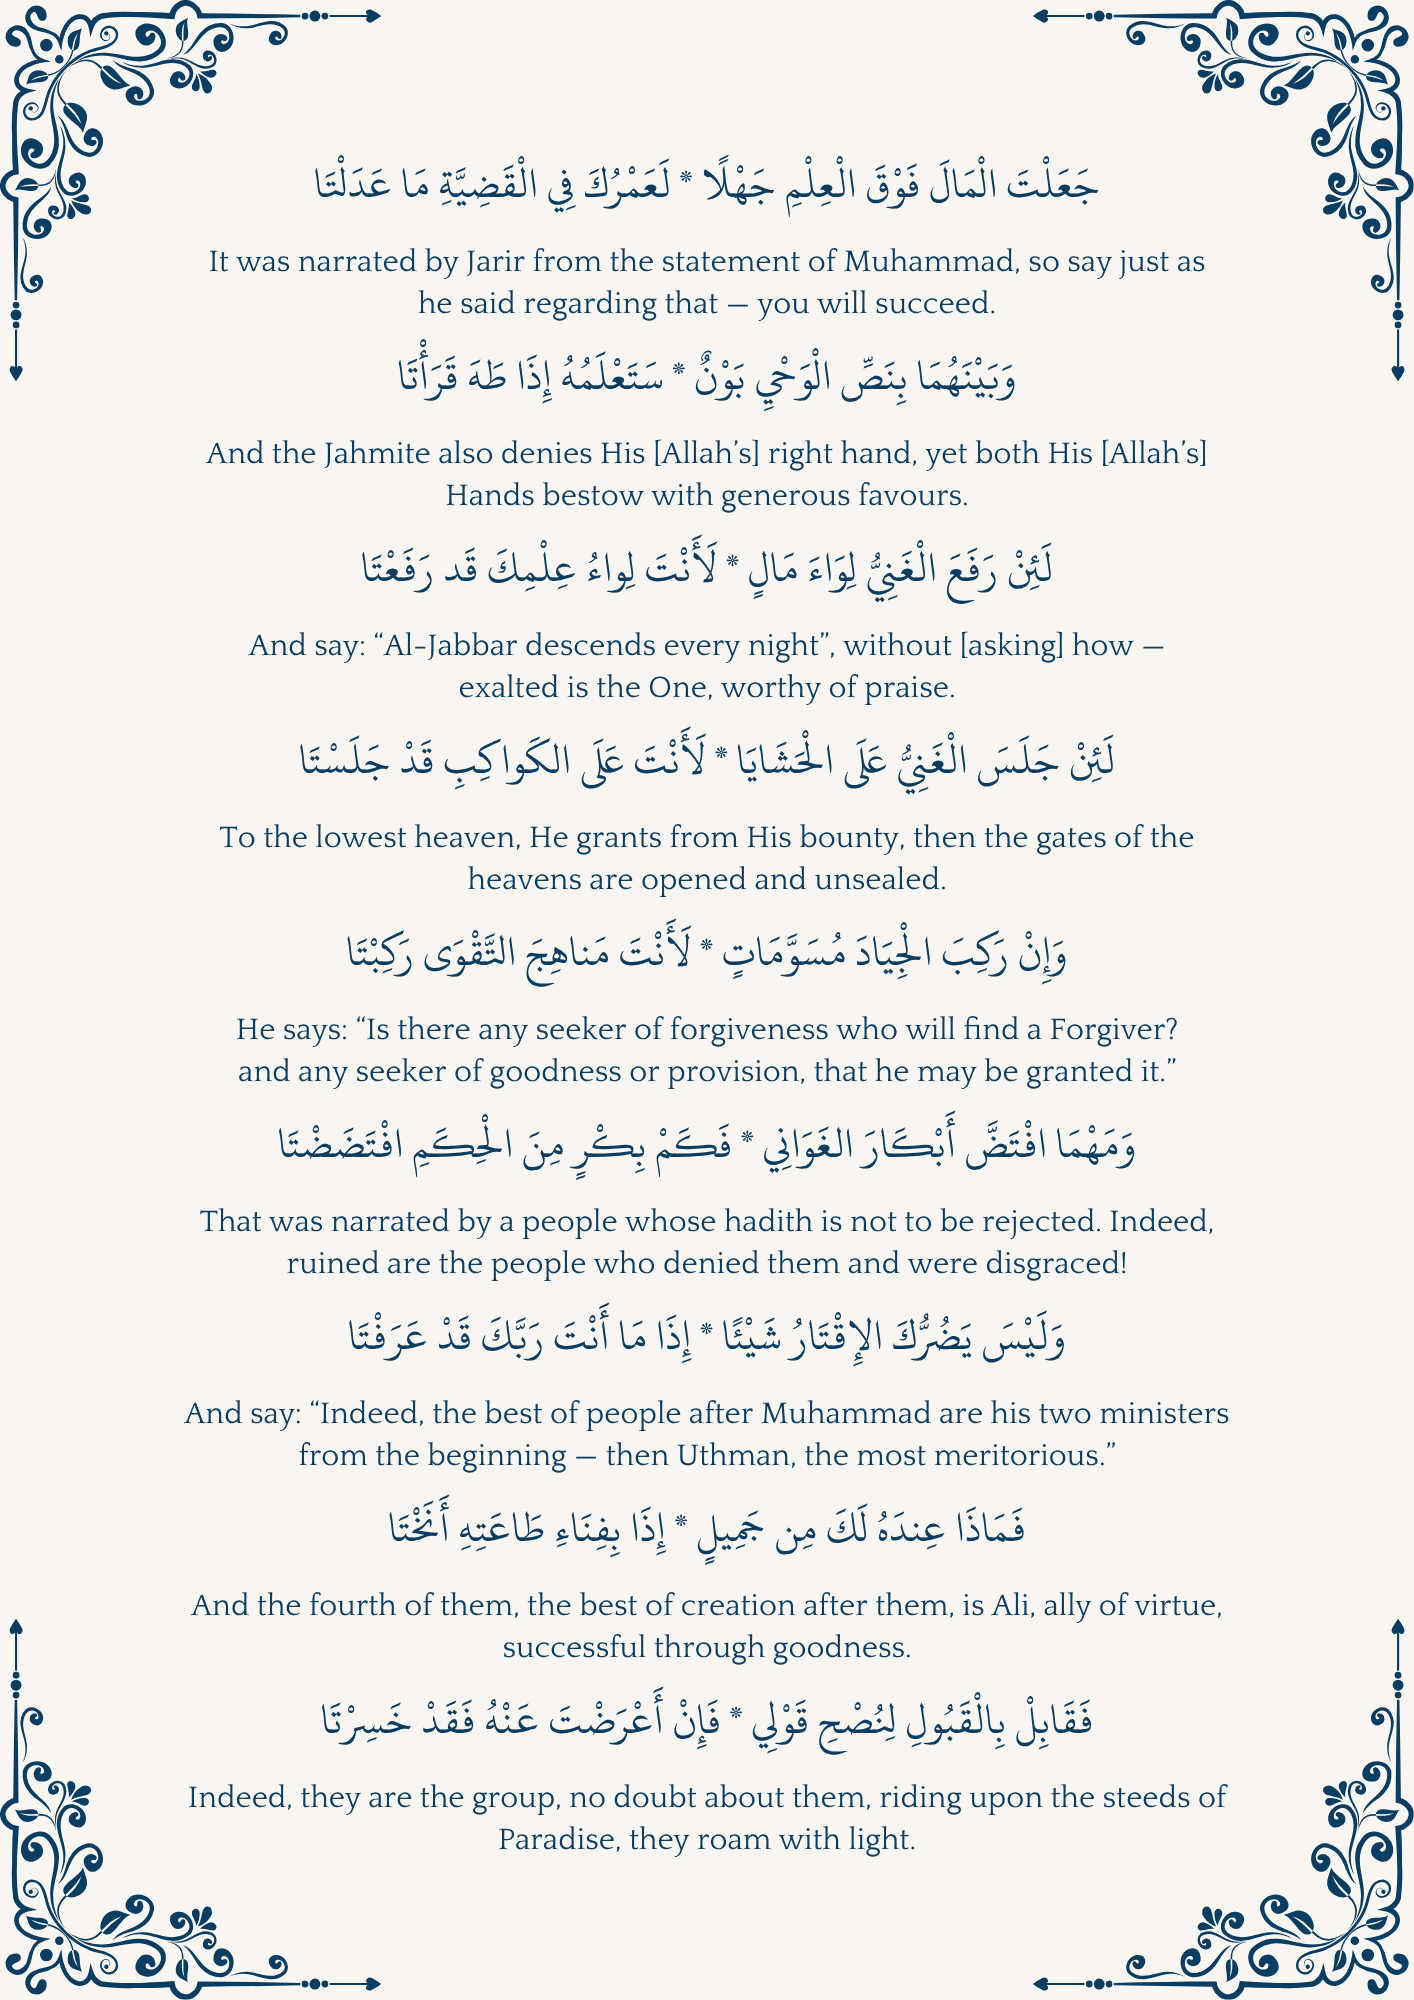 جَعَلْتَ الْمَالَ فَوْقَ الْعِلْمِ جَهْلًا * لَعَمْرُكَ فِي الْقَضِيَّةِ مَا عَدَلْتَا
It was narrated by Jarir from the statement of Muhammad, so say just as
he said regarding that — you will succeed.
وَبَيْنَهُمَا بِنَصِّ الْوَحْيِ بَوْنٌ * سَتَعْلَمُهُ إِذَا طَهَ قَرَأْتَا
And the Jahmite also denies His [Allah’s] right hand, yet both His [Allah’s]
Hands bestow with generous favours.
لَئِنْ رَفَعَ الْغَنِيُّ لِوَاءَ مَالٍ * لَأَنْتَ لِواءُ عِلْمِكَ قَد رَفَعْتَا
And say: “Al-Jabbar descends every night”, without [asking] how —
exalted is the One, worthy of praise.
لَئِنْ جَلَسَ الْغَنِيُّ عَلَى الْحَشَايَا * لَأَنْتَ عَلَى الكَواكِبِ قَدْ جَلَسْتَا
To the lowest heaven, He grants from His bounty, then the gates of the
heavens are opened and unsealed.
وَإِنْ رَكِبَ الْجِيَادَ مُسَوَّمَاتٍ * لَأَنْتَ مَناهِجَ التَّقْوَى رَكِبْتَا
He says: “Is there any seeker of forgiveness who will find a Forgiver?
and any seeker of goodness or provision, that he may be granted it.”
وَمَهْمَا افْتَضَّ أَبْكَارَ الغَوَانِي * فَكَمْ بِكْرٍ مِنَ الْحِكَمِ افْتَضَضْتَا
That was narrated by a people whose hadith is not to be rejected. Indeed,
ruined are the people who denied them and were disgraced!
وَلَيْسَ يَضُرُّكَ الإِقْتَارُ شَيْئًا * إِذَا مَا أَنْتَ رَبَّكَ قَدْ عَرَفْتَا
And say: “Indeed, the best of people after Muhammad are his two ministers
from the beginning — then Uthman, the most meritorious.”
فَمَاذَا عِندَهُ لَكَ مِن جَمِيلٍ * إِذَا بِفِنَاءِ طَاعَتِهِ أَنَخْتَا
And the fourth of them, the best of creation after them, is Ali, ally of virtue,
successful through goodness.
فَقَابِلْ بِالْقَبُولِ لِنُصْحِ قَوْلِي * فَإِنْ أَعْرَضْتَ عَنْهُ فَقَدْ خَسِرْتَا
Indeed, they are the group, no doubt about them, riding upon the steeds of
Paradise, they roam with light.